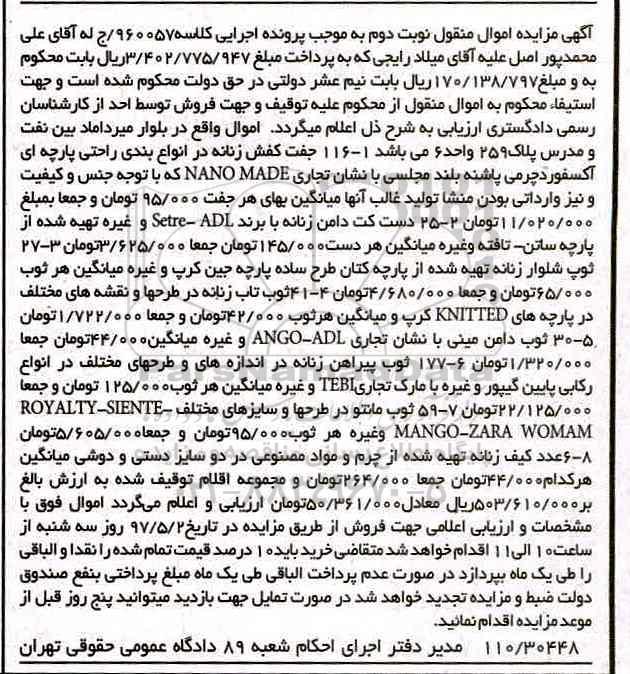 آگهی مزایده اموال منقول نوبت دوم به موجب پرونده اجرایی کلاسه۹۶۰۰۵۷/ج له آقای علی
محمدپور اصل علیه آقای میلاد رایجی که به پرداخت مبلغ ۳/۴۰۲/۷۷۵/۹۴۷ریال بابت محکوم
به و مبلغ۱۷۰/۱۳۸/۷۹۷ریال بابت نیم عشر دولتی در حق دولت محکوم شده است و جهت
استیفاء محکوم به اموال منقول از محکوم علیه توقیف و جهت فروش توسط احد از کارشناسان
رسمی دادگستری ارزیابی به شرح ذل اعلام میگردد. اموال واقع در بلوار میرداماد بین نفت
و مدرس پلاک۲۵۹ واحد۶ می باشد ۱-۱۱۶ جفت کفش زنانه در انواع بندی راحتی پارچه ای
آکسفوردچرمی پاشنه بلند مجلسی با نشان تجاری NANO MADE که با توجه جنس و کیفیت
و نیز وارداتی بودن منشا تولید غالب آنها میانگین بهای هر جفت ۹۵/۰۰۰ تومان و جمعا بمبلغ
۱۱/۰۲۰/۰۰۰تومان ۲-۲۵ دست کت دامن زنانه با برند Setre- ADL و غیره تهیه شده از
پارچه ساتن- تافته وغیره میانگین هر دست۱۴۵/۰۰۰تومان جمعا ۳/۶۲۵/۰۰۰تومان ۳-۲۷
ثوپ شلوار زنانه تهیه شده از پارچه کتان طرح ساده پارچه جین کرپ و غیره میانگین هر ثوب
۶۵/۰۰۰تومان و جمعا ۴/۶۸۰/۰۰۰تومان ۴-۴۱ثوب تاب زنانه در طرحها و نقشه های مختلف
در پارچه های KNITTED کرپ و میانگین هرثوب ۴۲/۰۰۰تومان و جمعا ۱/۷۲۲/۰۰۰تومان
۵-۳۰ ثوب دامن مینی با نشان تجاری ANGO-ADL و غیره میانگین۴۴/۰۰۰تومان جمعا
۱/۳۲۰/۰۰۰تومان ۶-۱۷۷ ثوب پیراهن زنانه در اندازه های و طرحهای مختلف در انواع
رکابی پایین گیپور و غیره با مارک تجاریTEBI و غیره میانگین هر ثوب۱۲۵/۰۰۰ تومان و جمعا
۲۲/۱۲۵/۰۰۰تومان ۷-۵۹ ثوب مانتو در طرحها و سایزهای مختلف ROYALTY-SIENTE-
MANGO-ZARA WOMAM وغیره هر ثوب۹۵/۰۰۰تومان و جمعا۵/۶۰۵/۰۰۰تومان
۸-۶عدد کیف زنانه تهیه شده از چرم و مواد مصنوعی در دو سایز دستی و دوشی میانگین
هرکدام۴۴/۰۰۰تومان جمعا ۲۶۴/۰۰۰تومان و مجموعه اقلام توقیف شده به ارزش بالغ
بر۵۰۳/۶۱۰/۰۰۰ریال معادل۵۰/۳۶۱/۰۰۰تومان ارزیابی و اعلام می‌گردد اموال فوق با
مشخصات و ارزیابی اعلامی جهت فروش از طریق مزایده در تاریخ۹۷/۵/۲ روز سه شنبه از
ساعت۱۰ الی۱۱ اقدام خواهد شد متقاضی خرید باید۱۰ درصد قیمت تمام شده را نقدا و الباقی
را طی یک ماه بپردازد در صورت عدم پرداخت الباقی طی یک ماه مبلغ پرداختی بنفع صندوق
دولت ضبط و مزایده تجدید خواهد شد در صورت تمایل جهت بازدید میتوانید پنج روز قبل از
موعد مزایده اقدام نمائید.
۱۱۰/۳۰۴۴۸ مدیر دفتر اجرای احکام شعبه ۸۹ دادگاه عمومی حقوقی تهران